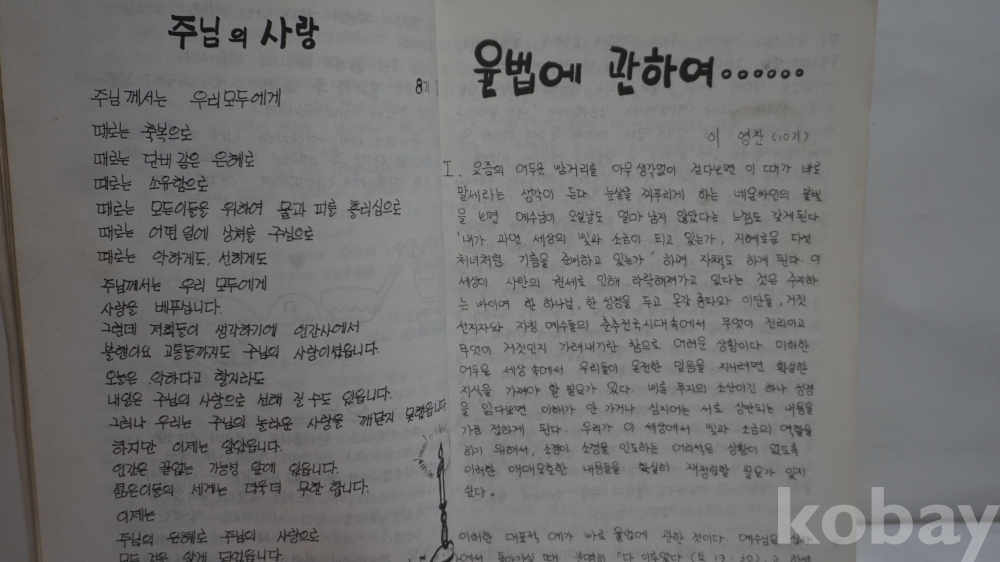 주님의 사랑
8기
주님께서는 우리모두에게
때로는 축복으로
때로는 단비 같은 은혜로
때로는 소유함으로
때로는 모든이들을 위하여 물과 피를 흘리심으로
때로는 어떤 일에 상처를 주심으로
때로는 악하게도, 선하게도
주님께서는 우리 모두에게
사랑을 베푸십니다.
그런데 저희들이 생각하기에 인간사에서
불행이요 고통들까지도 주님의 사랑이셨습니다.
오늘은 악하다고 할지라도
내일은 주님의 사랑으로 선해 질 수도 있읍니다.
그러나 우리는 주님의 놀라운 사랑을 깨닫지 못했읍니다
하지만 이제는 알았읍니다.
인간은 끝없는 가능성 앞에 있읍니다.
젊은이들의 세계는 더욱더 무한 합니다.
이제는
주님의 은혜로 주님의 사랑으로
모든 것을 알게 되었읍니다.
율법에 관하여......
이 영찬 (10기)
I. 요즘의 어두운 밤거리를 아무생각없이 걷다보면 이 때가 바로
말세라는 생각이 든다. 눈살을 찌푸리게 하는 네온싸인의 불빛
을 보면 예수님이 오실날도 얼마 남지 않았다는 느낌도 갖게된다.
'내가 과연 세상의 빛과 소금이 되고 있는가, 지혜로운 다섯
처녀처럼 기름을 준비하고 있는가' 하며 자책도 하게 된다. 이
세상이 사탄의 권세로 인해 타락해져가고 있다는 것은 주지하
는 바이며 한 하나님, 한 성경을 두고 온갖 종파와 이단들, 거짓
선지자와 자칭 예수들의 춘추전국시대 속에서 무엇이 진리이고
무엇이 거짓인지 가려내기란 참으로 어려운 상황이다. 이러한
어두운 세상 속에서 우리들이 온전한 믿음을 지니려면 확실한
지식을 가져야 할 필요가 있다. 비록 무지의 소산이긴 하나 성경
을 읽다보면 이해가 안 가거나 심지어는 서로 상반되는 내용을
가끔 접하게 된다. 우리가 이 세상에서 빛과 소금의 역할을
하기 위해서, 소경이 소경을 인도하는 어리석은 상황이 없도록
이러한 애매모호한 내용들을 확실히 재정립할 필요가 있지
싶다.
이러한 대표적 예가 바로 율법에 관한 것이다. 예수님은
에서 돌아가실 때 분명히 "다 이루었다 (요 19:30)
kobay